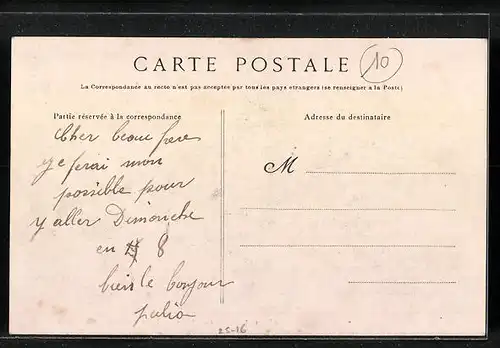 CARTE POSTALE
10
La Correspondance au recto n'est pas acceptée par tous les pays étrangers (se renseigner à la Poste)
Partie réservée à la correspondance
Adresse du destinataire
Cher beau frere
M
je ferai mon
possible pour
y aller Dimanche
en 8
bien le bonjour
julia
25-16